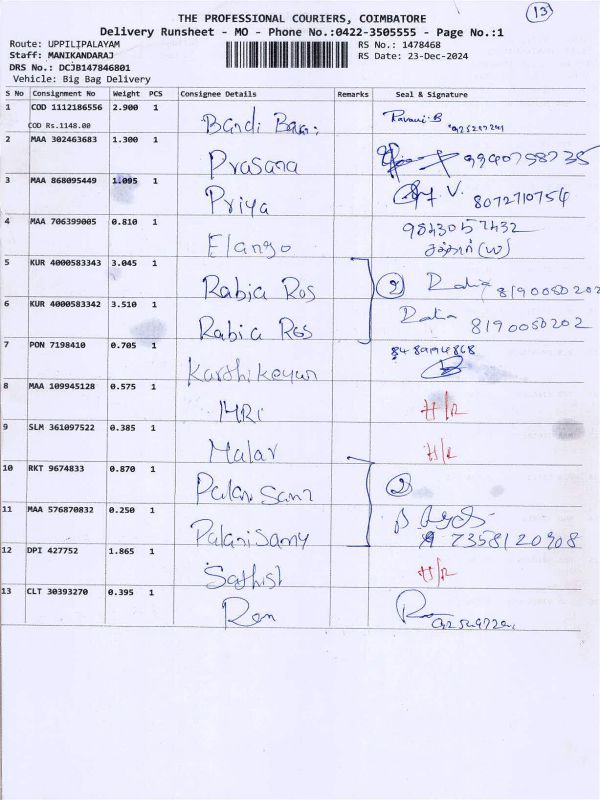 13
THE PROFESSIONAL COURIERS, COIMBATORE
Delivery Runsheet - MO - Phone No.:0422-3505555 - Page No.:1
Route: UPPILIPALAYAM
Staff: MANIKANDARAJ
DRS No.: DCJB147846801
Vehicle: Big Bag Delivery
RS No.: 1478468
RS Date: 23-Dec-2024
S No Consignment No Weight PCS Consignee Details Remarks Seal & Signature
1 COD 1112186556 2.900 1
COD Rs.1148.00 Bandi
2 MAA 302463683 1.300 1 Prasana
3 MAA 868095449 1.095 1 Priya V. 8072710754
4 MAA 706399005 0.810 1 Elango
5 KUR 4000583343 3.045 1 Rabia Ros 2 8190050202
6 KUR 4000583342 3.510 1 Rabia Ros 8190050202
7 PON 7198410 0.705 1 Karthikeyan
8 MAA 109945128 0.575 1 MRI H/R
9 SLM 361097522 0.385 1 Malar H/R
10 RKT 9674833 0.870 1 Palani Sami 2
11 MAA 576870832 0.250 1 Palanisamy 7358120908
12 DPI 427752 1.865 1 Sathish H/R
13 CLT 30393270 0.395 1 Ren